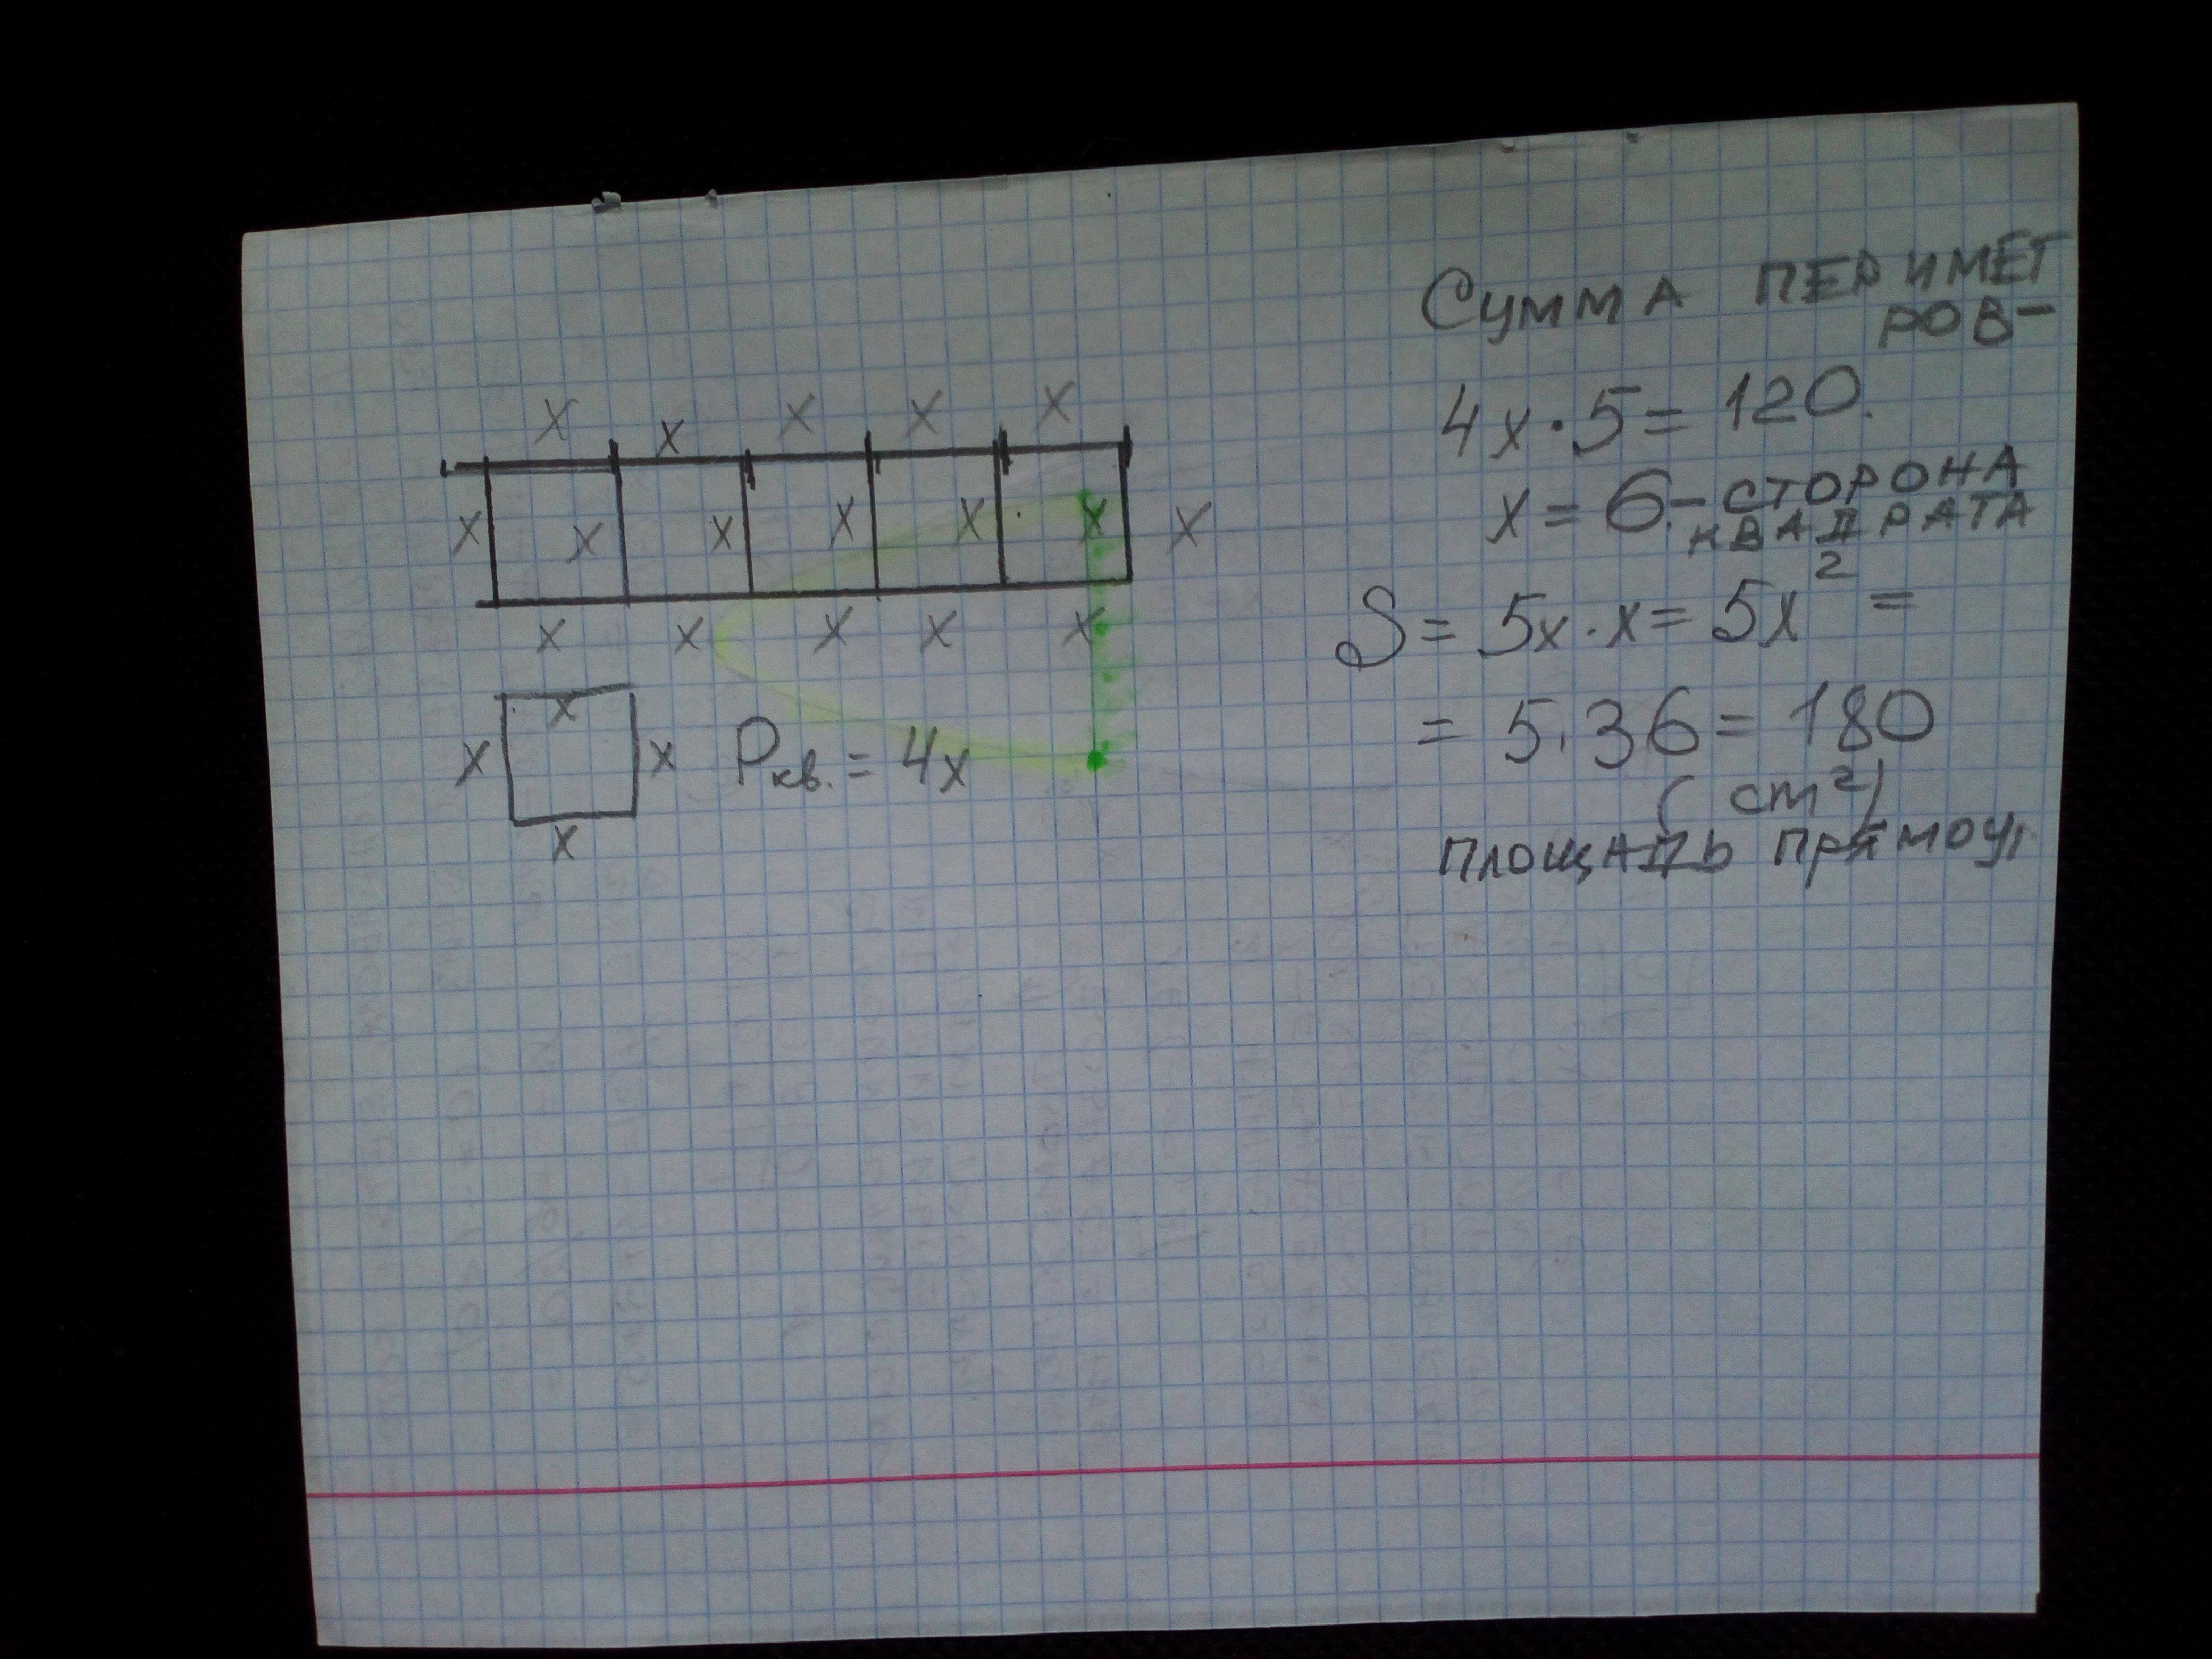 x x x x x
x x x x x x x
x x x x x
x
x x Pкв. = 4x
x
Сумма ПЕРИМЕТ
РОВ-
4x·5= 120.
x = 6.- СТОРОНА
КВАДРАТА
S= 5x·x= 5x² =
= 5·36= 180
(cm²)
ПЛОЩАДЬ ПРЯМОУГ